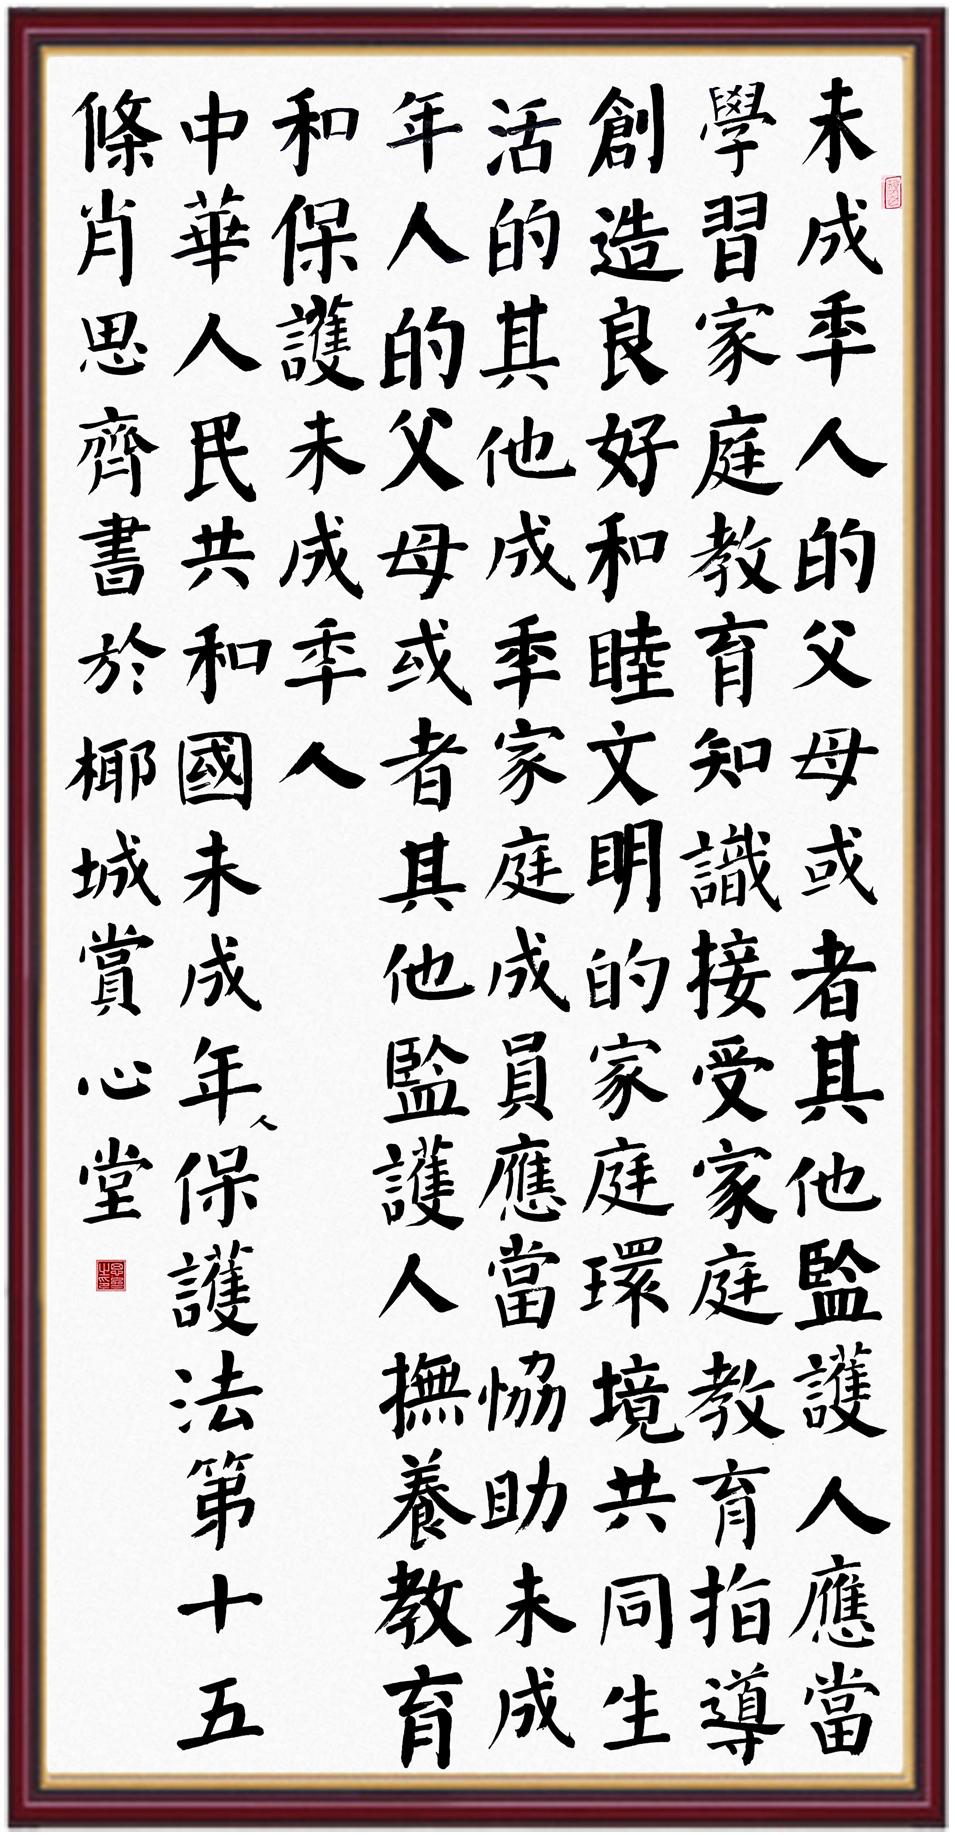 未成秊人的父母或者其他監護人應當
學習家庭教育知識接受家庭教育指導
創造良好和睦文明的家庭環境共同生
活的其他成秊家庭成員應當恊助未成
年人的父母或者其他監護人撫養教育
和保護未成秊人
中華人民共和國未成年人保護法第十五
條肖思齊書於椰城賞心堂